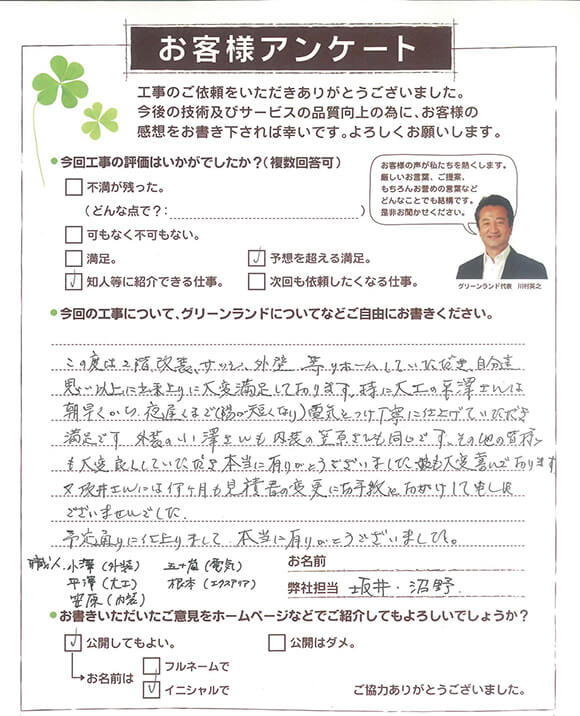 お客様アンケート
工事のご依頼をいただきありがとうございました。
今後の技術及びサービスの品質向上の為に、お客様の
感想をお書き下されば幸いです。よろしくお願いします。
•今回工事の評価はいかがでしたか？（複数回答可）
不満が残った。
（どんな点で？：　）
可もなく不可もない。
満足。
予想を超える満足。
知人等に紹介できる仕事。
次回も依頼したくなる仕事。
お客様の声が私たちを熱くします。
厳しいお言葉、ご提案、
もちろんお誉めの言葉など
どんなことでも結構です。
是非お聞かせください。
グリーンランド代表　川村英之
•今回の工事について、グリーンランドについてなどご自由にお書きください。
この度は2階改装、サッシ、外壁 等リホームしていただき、自分達
思い以上に出来上りに大変満足しております。特に大工の平澤さんは
朝早くから、夜遅くまで(陽が短くなり)電気をつけ丁寧に仕上げていただき
満足です 外装の小澤さんも内装の笠原さんも同じです。その他の皆様
も大変良くしていただき本当に有りがとうございました 娘も大変喜んでおります
又坂井さんには何ヶ月も見積書の変更にお手数をおかけして申し訳
ございませんでした
予定通りに仕上りまして 本当に有りがとうございました。
職人 小澤（外装）　五十嵐（電気）
平澤（大工）　根本（エクステリア）
笠原（内装）
お名前
弊社担当 坂井・沼野
•お書きいただいたご意見をホームページなどでご紹介してもよろしいでしょうか？
公開してもよい。
公開はダメ。
お名前は
フルネームで
イニシャルで
ご協力ありがとうございました。